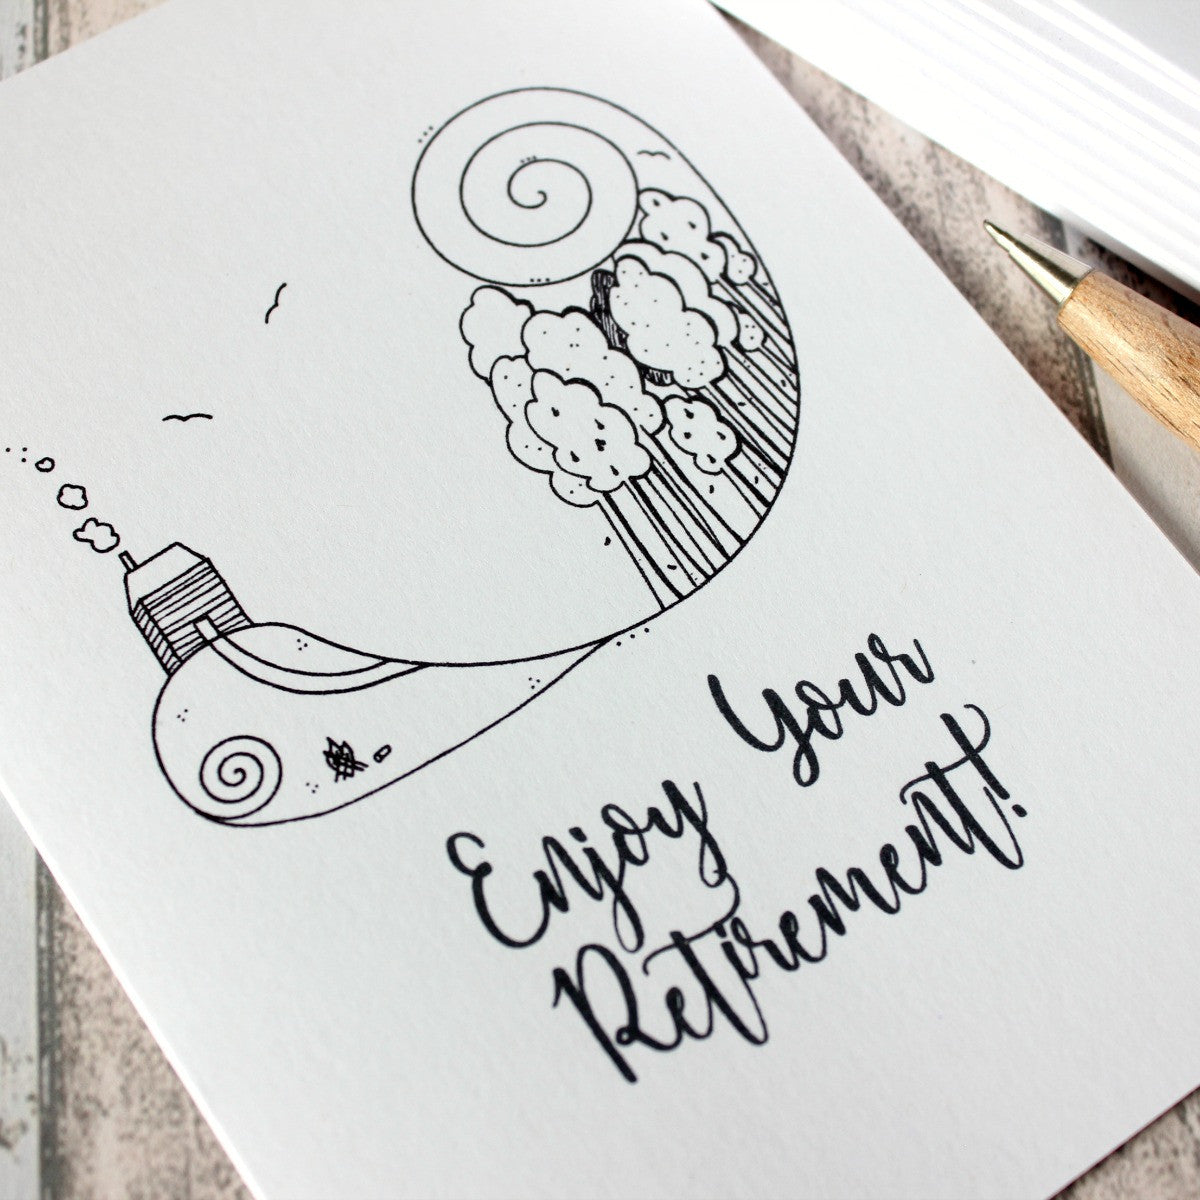 Enjoy Your
Retirement!